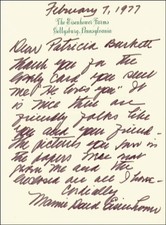 February 7, 1977
The Eisenhower Farms
Gettysburg, Pennsylvania
Dear Patricia Burkett
Thank you for the
lovely card you sent
me "He loves you" It
is nice there are
friendly folks like
you and your friend-
the pictures you saw in
the papers was not
from me and the
enclosed are as I
Cordially
Mamie Doud Eisenhower